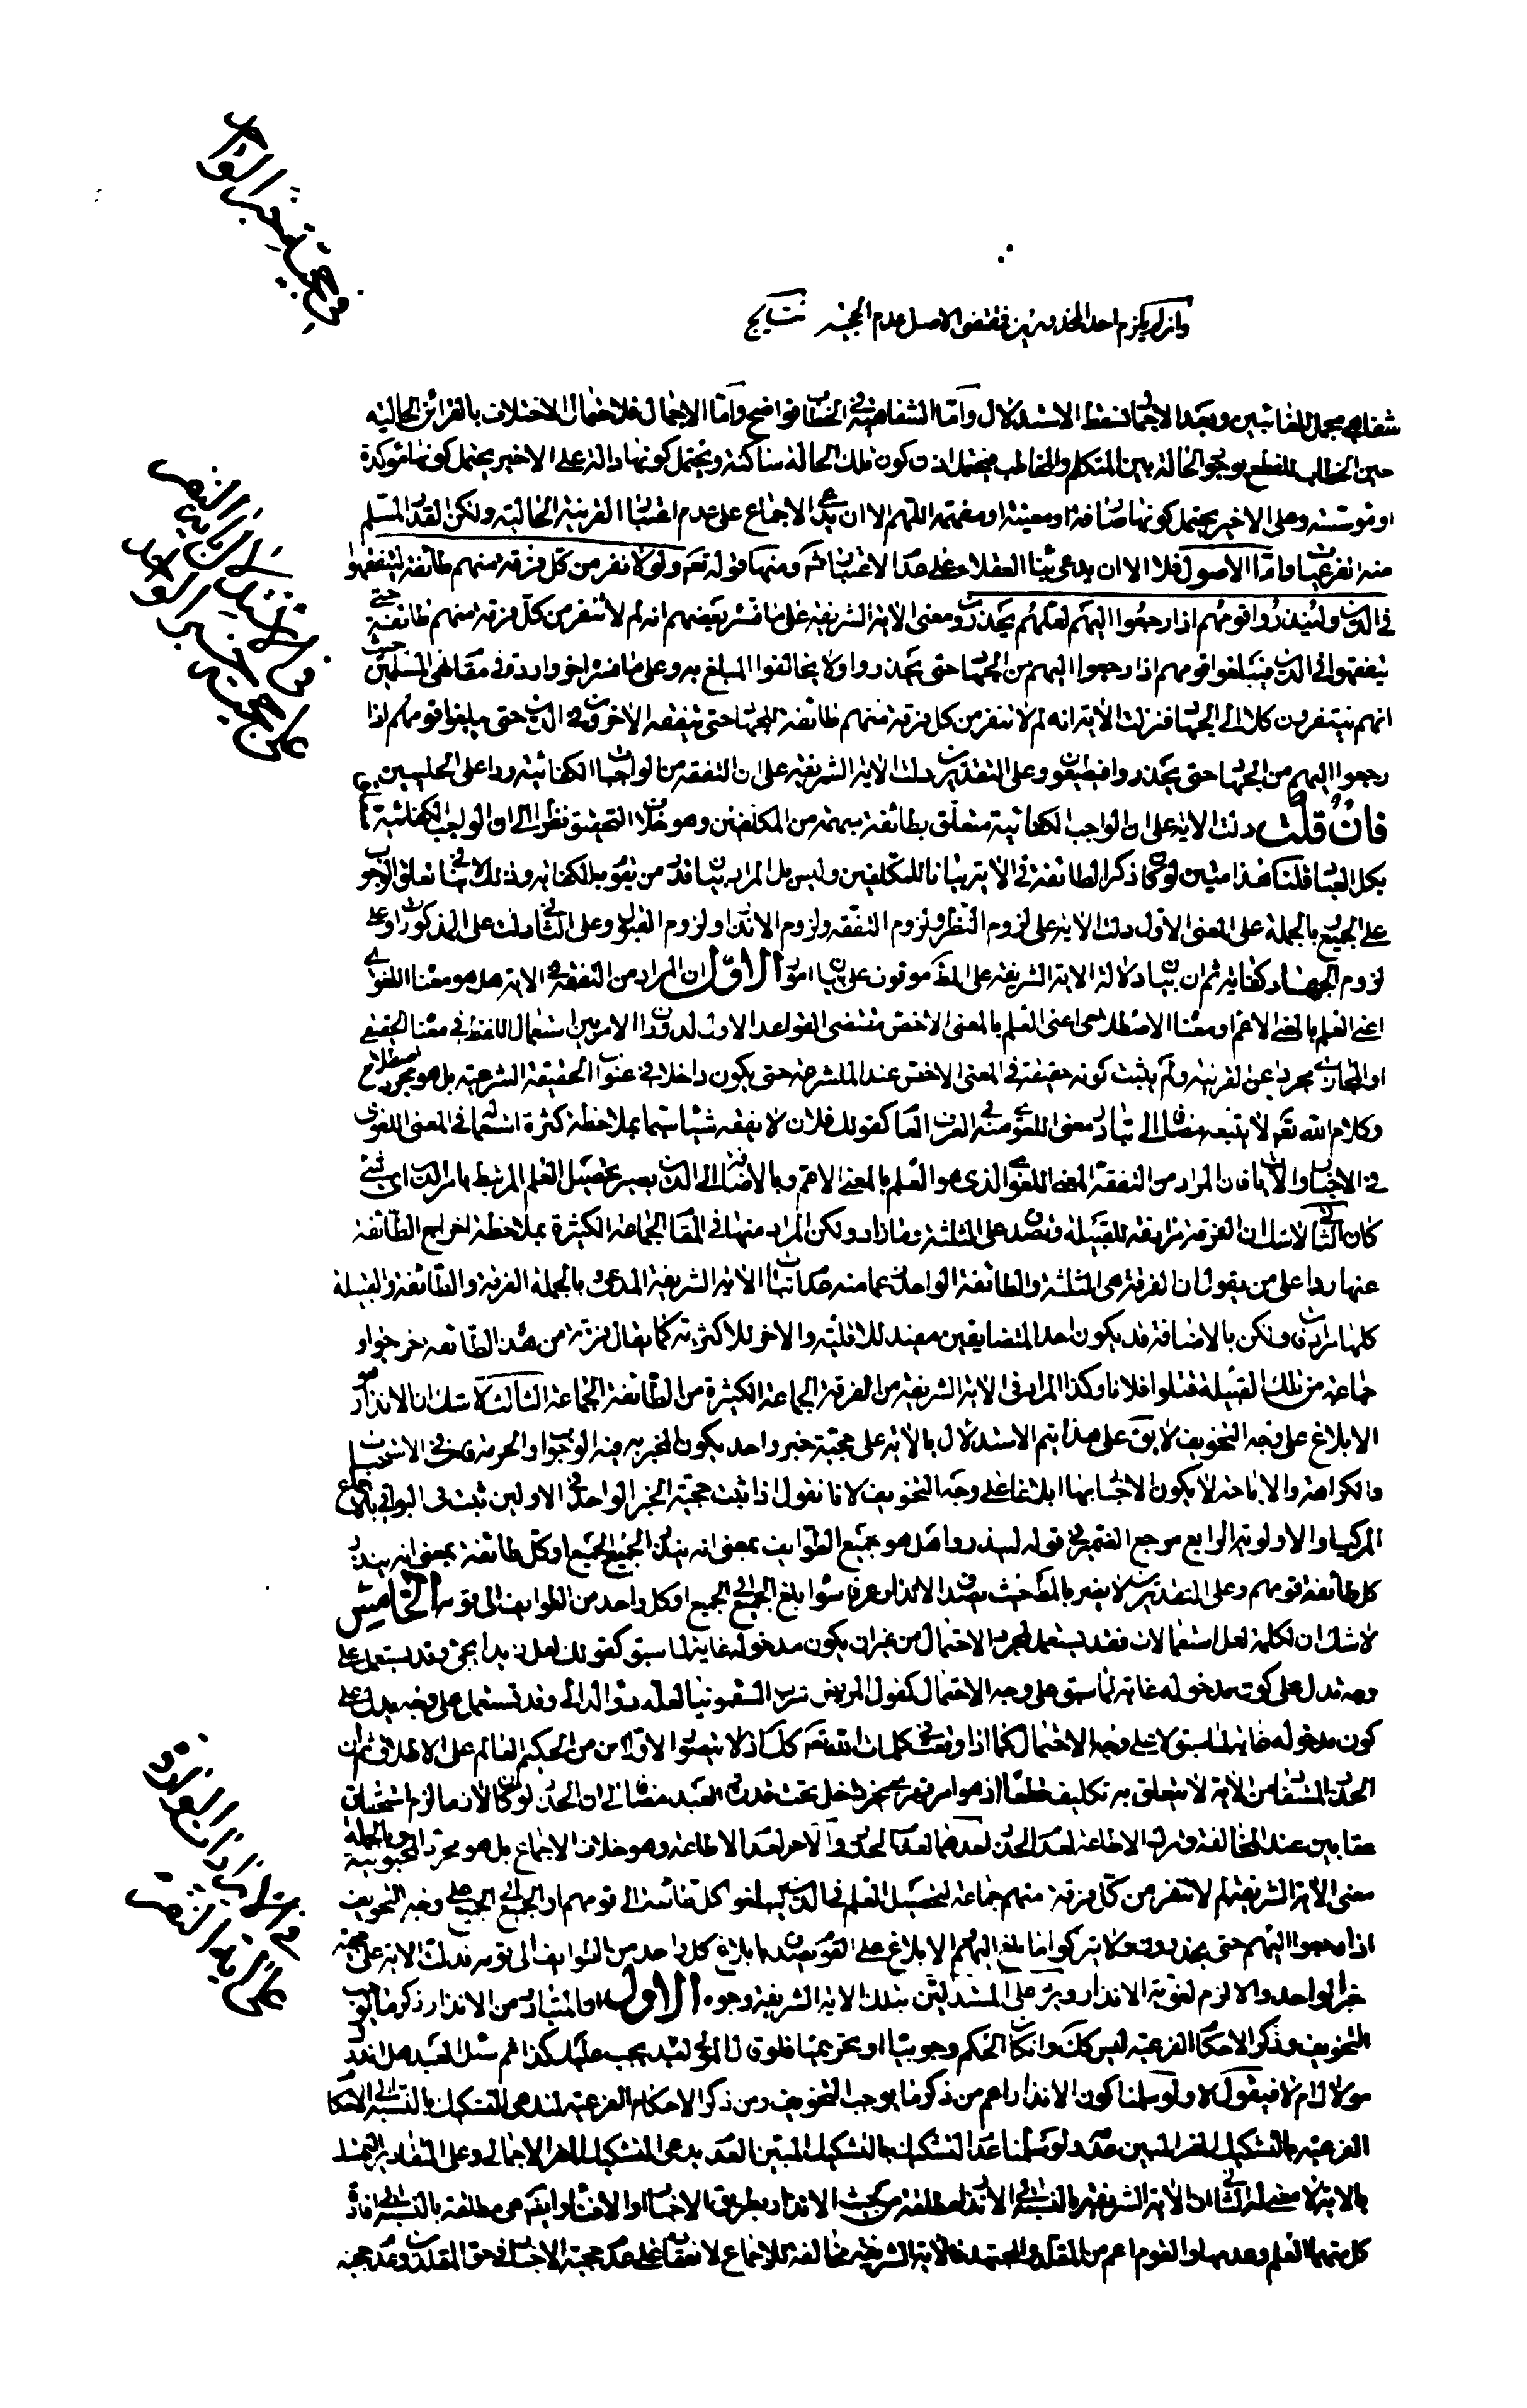 في حجية خبر الواحد
وان لم يلزم احد المحذورين فمقتضى الاصل عدم الحجية نتايج
شفاهي مجمل للغائبين وبعد الاجمال سقط الاستدلال واما الشفاهية في الخطاب فواضح واما الاجمال فلاحتمال الاختلاف بالقرائن الحالية
حين الخطاب للقطع بوجود الحالة بين المتكلم والمخاطب فيحتمل ان تكون تلك الحالة ساكتة ويحتمل كونها دالة وعلى الاخير يحتمل كونها مؤكدة
او مؤسسة وعلى الاخير يحتمل كونها صارفة او معينة او مفهمة اللهم الا ان يدعى الاجماع على عدم اعتبار القرينة الحالية ولكن القدر المسلم
منه الفرعيات واما الاصول فلا الا ان يدعى بناء العقلاء على عدم الاعتبار ثمه ومنها قوله تعم ولولا نفر من كل فرقة منهم طائفة ليتفقهوا
في الدين ولينذروا قومهم اذا رجعوا اليهم لعلهم يحذرون ومعنى الاية الشريفة على ما فسر بعضهم انه لم لا تنفر من كل فرقة منهم طائفة حتى
يتفقهوا في الدين فيبلغوا قومهم اذا رجعوا اليهم من الجهاد حتى يحذروا ولا يخالفوا المبلغ به وعلى ما فسر اخر وارد في مقام نهى المسلمين حيث
انهم ينتفرون كلا الى الجهاد فنزلت الاية انه لم لا تنفر من كل فرقة منهم طائفة للجهاد حتى يتفقه الاخرون في الدين حتى يبلغوا قومهم اذا
رجعوا اليهم من الجهاد حتى يحذروا فيطيعون وعلى التقديرين دلت الاية الشريفة على ان التفقه من الواجبات الكفائية ردا على الحلبيين
فان قلت دلت الاية على ان الواجب الكفائية متعلق بطائفة مبهمة من المكلفين وهو خلاف التحقيق نظرا الى ان الواجب الكفائية
بكل العباد قلنا هذا متين لو كان ذكر الطائفة في الاية بيانا للمكلفين وليس بل المراد بيان قدر من يقوم به الكفاية وذلك لا ينافي تعلق الوجوب
على الجميع بالجملة على المعنى الاول دلت الاية على لزوم النفر ولزوم التفقه ولزوم الانذار ولزوم القبول وعلى الثاني دلت على المذكورات وعلى
لزوم الجهاد كفاية ثم ان بيان دلالة الاية الشريفة على المط موقوف على بيان امور الاول ان المراد من التفقه في الاية هل هو معناه اللغوي
اعني العلم بالمعنى الاعم او معناه الاصطلاحي اعني العلم بالمعنى الاخص مقتضى القواعد الاول لدوران الامر بين استعمال اللفظ في معناه الحقيقي
او المجازي مجردا عن القرينة ولم يثبت كونه حقيقة في المعنى الاخص عند المتشرعة حتى يكون داخلا في عنوان الحقيقة الشرعية بل هو مجرد اصطلاح
وكلام الله تعم لا يتبعه مضافا الى تبادر معنى اللغوي منه في العرف العام كقولك فلان لا يفقه شيئا سيما بملاحظة كثرة استعماله في المعنى اللغوي
في الاخبار والايات فان المراد من التفقه المعنى اللغوي الذي هو العلم بالمعنى الاعم وبالاضافة الى الدين يصير تحصيل العلم المرتبط بامر الدين اي شيء
كان الثاني لا شك ان الفرقة مرادفة للقبيلة وتصدق على الثلثة وما زاد ولكن المراد منها في المقام الجماعة الكثيرة بملاحظة اخراج الطائفة
عنها ردا على من يقول ان الفرقة هي الثلثة والطائفة الواحد
كلها مرادف ولكن بالاضافة قد يكون احد المتضايفين مفيد للاقلية والاخر للاكثرية كما يقال فرقة من هذه الطائفة خرجوا و
جماعة من تلك القبيلة قتلوا فلانا وكذا المراد في الاية الشريفة من الفرقة الجماعة الكثيرة من الطائفة الجماعة الثالث لا شك ان الانذار هو
الابلاغ على وجه التخويف لا يق على هذا يتم الاستدلال بالاية على حجية خبر واحد يكون المخبر به فيه الوجوب او الحرمة واما في الاستحباب
والكراهة والاباحة لا يكون الاخبار بها ابلاغا على وجه التخويف لانا نقول اذا ثبت حجية الخبر الواحد في الاولين ثبت في البواقي بالاجماع
المركب او الاولوية الرابع مرجع الضمير في قوله لينذروا هل هو جميع الطوايف بمعنى انه ينذر الجميع الجميع او كل طائفة بمعنى انه ينذر
كل طائفة قومهم وعلى التقديرين لا يضر بالمط حيث يصدق الانذار عرفا سواء بلغ الجميع الى الجميع او كل واحد من الطوايف الى قومه الخامس
لا شك ان لكلمة لعل استعمالات فقد يستعمل لمجرد الاحتمال من غير ان يكون مدخوله غاية لما سبق كقولك لعل زيدا يجئ وقد يستعمل على
وجه تدل على كون مدخوله غاية لما سبق على وجه الاحتمال كقول المريض شرب السقمونيا لعله دواء لدائي وقد تستعمل على وجه يدل على
كون مدخوله غاية لما سبق لا على وجه الاحتمال كما اذا وقعت في كلمات الله تعم كك اذ لا يتصور الاولان من الحكيم العالم على الاطلاق ثم ان
الحذر المستفاد من الاية لا يتعلق به تكليف قطعا اذ هو امر قهري غير داخل تحت قدرة العبد مضافا الى ان الحذر لو كان لازما لزم استحقاق
عقابين عند المخالفة وترك الاطاعة احدهما لعدم الحذر والاخر لعدم الاطاعة وهو خلاف الاجماع بل هو مجرد المحبوبية وبالجملة
معنى الاية الشريفة لم لا تنفر من كل فرقة منهم جماعة لتحصيل العلم في الدين ليبلغوا كل طائفة الى قومهم او الجميع الى الجميع على وجه التخويف
اذا رجعوا اليهم حتى يحذرون ولا يتركوا ما بلغ اليهم الابلاغ على القوم يصدق بابلاغ كل واحد من الطوايف الى قومه فدلت الاية على حجية
خبر الواحد والا لزم لغوية الانذار ويرد على المستدلين بتلك الاية الشريفة وجوه الاول ان المتبادر من الانذار ذكر ما يوجب
التخويف وذكر الاحكام الفرعية ليس كك وان كان الحكم وجوبيا او تحريميا فلو قال المولى لعبده يجب عليك كذا ثم سئل العبد هل انذرك
مولاك ام لا فيقول لا ولو سلمنا كون الانذار اعم من ذكر ما يوجب التخويف ومن ذكر الاحكام الفرعية لندعي التشكيك بالنسبة الى الاحكام
الفرعية بالتشكيك المضر المبين عدمه ولو سلمنا عدم التشكيك بالتشكيك المبين العدم يدعى التشكيك المضر الاجمالي وعلى التقادير التمسك
بالاية لا معنى له الثاني ان الاية الشريفة بالنسبة الى الانذار مطلقة من حيث الانذار بطريق الاخبار او الافتاء وايضا هي مطلقة بالنسبة الى افادة
كل منهما العلم وعدمها والقوم اعم من المقلد والمجتهد فالاية الشريفة مخالفة للاجماع لانعقاده على عدم حجية الاخبار في حق المقلدين وعدم حجية
في الاستدلال باية النفر
على حجية خبر الواحد
في الايرادات الواردة
على اية النفر